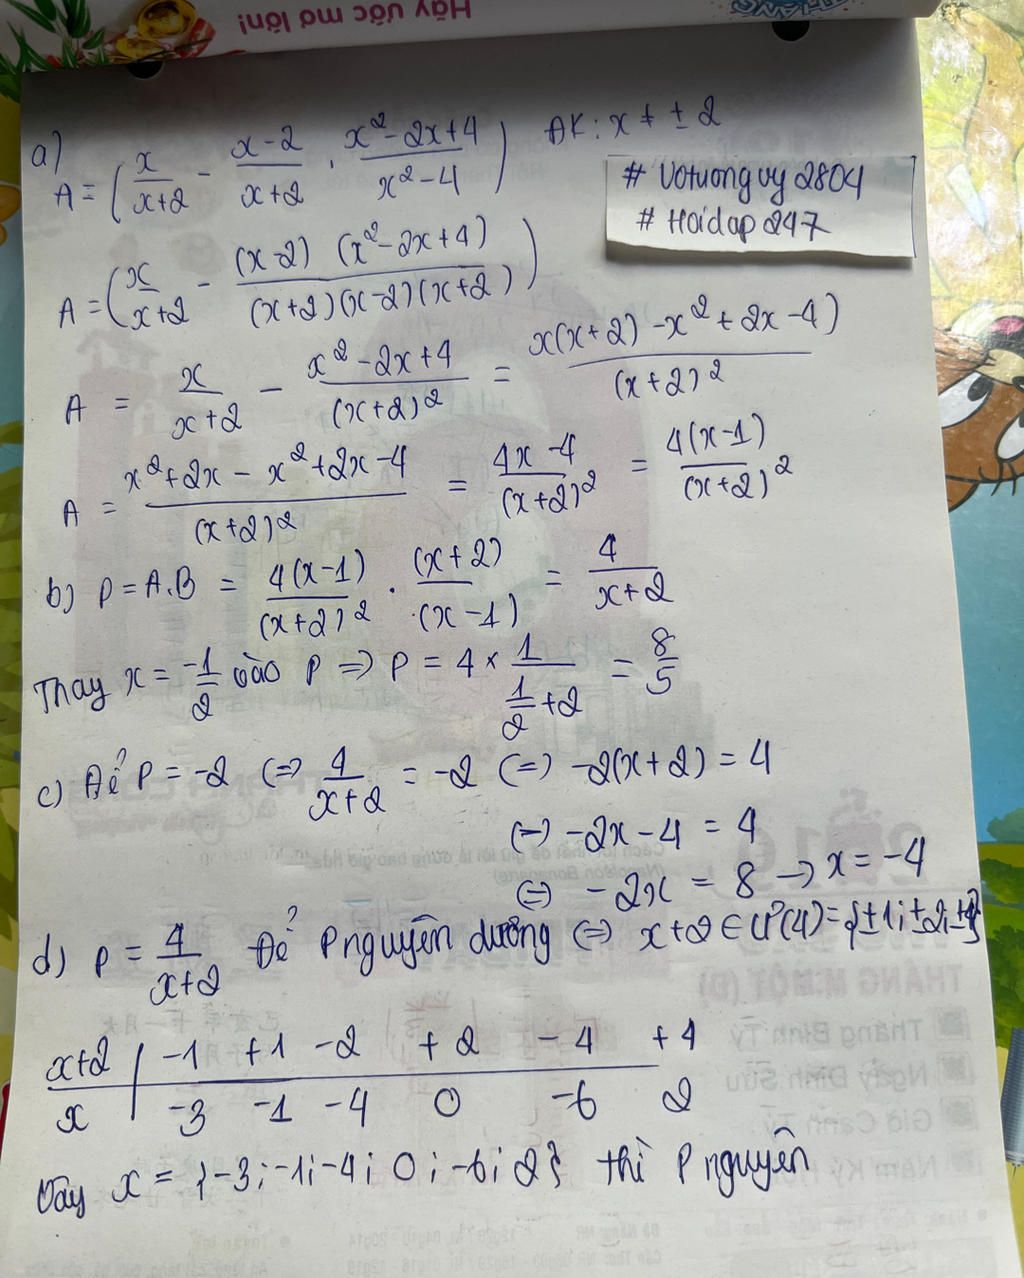 Hãy ước mơ lớn!
a) A = ( x/(x+2) - (x-2)/(x+2) . (x² - 2x + 4)/(x² - 4) ) ĐK: x ≠ ± 2
# Votuongvy2804
# Hoidap247
A = ( x/(x+2) - (x-2) (x² - 2x + 4)/(x+2)(x-2)(x+2) )
A = x/(x+2) - (x² - 2x + 4)/(x+2)² = x(x+2) - x² + 2x - 4)/(x+2)²
A = (x² + 2x - x² + 2x - 4)/(x+2)² = (4x - 4)/(x+2)² = 4(x-1)/(x+2)²
b) P = A.B = 4(x-1)/(x+2)² . (x+2)/(x-1) = 4/(x+2)
Thay x = -1/2 vào P => P = 4 × 1/(1/2 + 2) = 8/5
c) Để P = -2 (=> 4/(x+2) = -2 (=) -2(x+2) = 4
(=) -2x - 4 = 4
(=) -2x = 8 → x = -4
d) P = 4/(x+2) Để P nguyên dương (=) x+2 ∈ Ư(4) = {±1; ±2; ±4}
x+2 | -1 +1 -2 +2 -4 +4
x | -3 -1 -4 0 -6 2
Vậy x = {-3; -1; -4; 0; -6; 2} thì P nguyên
THÁNG M.MỘT (Đ)
Tháng Bính Tý
Ngày Đinh Sửu
Giờ Canh Tý